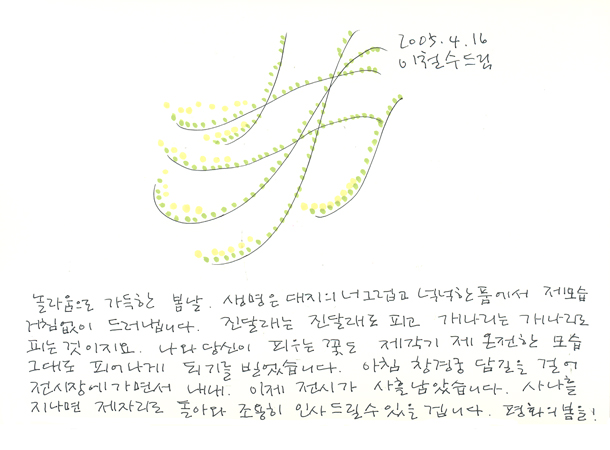 2005.4.16
이철수드림
놀라움으로 가득한 봄날. 생명은 대지의 너그럽고 넉넉한 품에서 제모습
거침없이 드러냅니다. 진달래는 진달래로 피고 개나리는 개나리로
피는 것이지요. 나와 당신이 피우는 꽃도 제각기 제 온전한 모습
그대로 피어나게 되기를 빌었습니다. 아침 창경궁 담길을 걸어
전시장에 가면서 내내. 이제 전시가 사흘 남았습니다. 사나흘
지나면 제자리로 돌아와 조용히 인사드릴 수 있을 겁니다. 평화의 봄을!